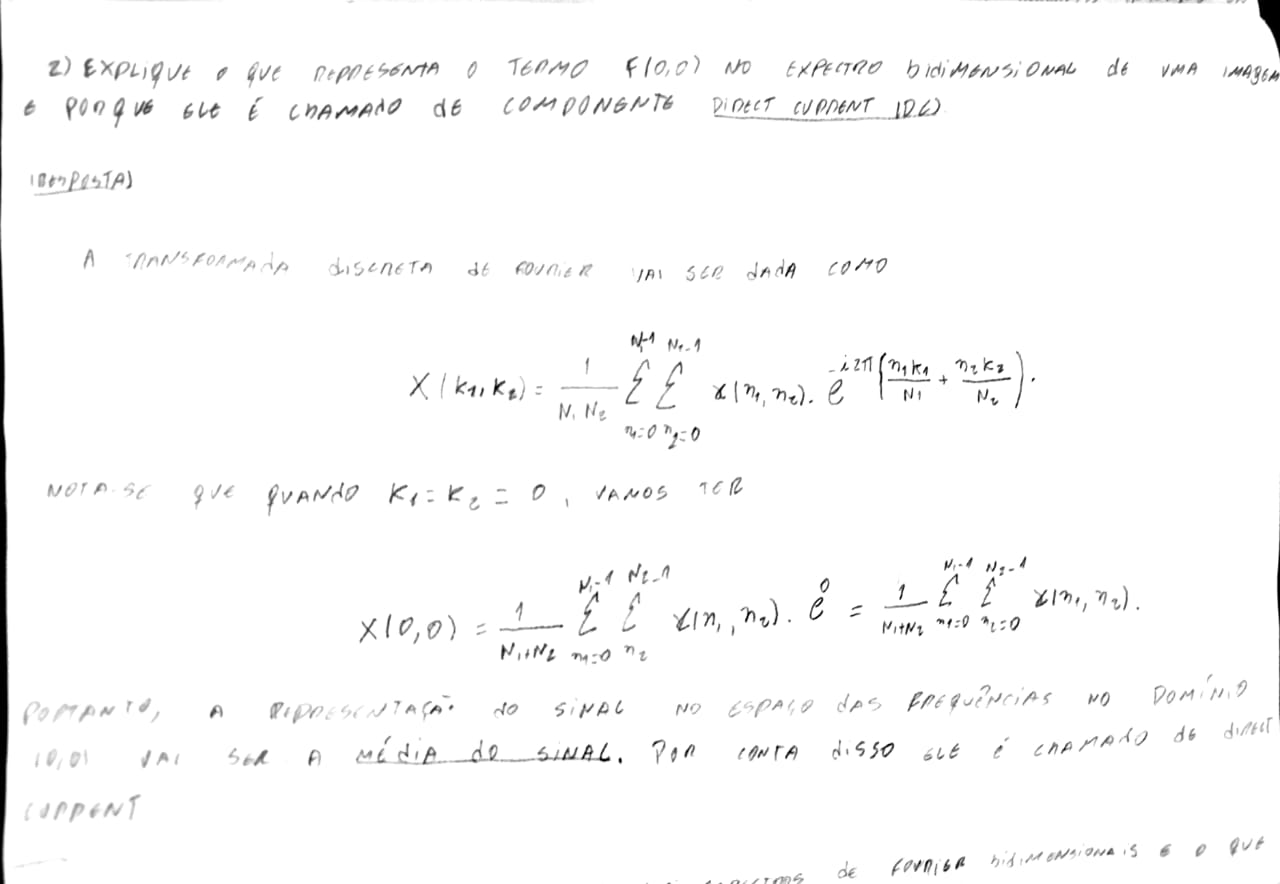 2) EXPLIQUE o QUE REPRESENTA O TERMO F(0,0) NO EXPECTRO bidiMENSIONAL de UMA IMAGEM
E PORQUE ELE É CHAMADO dE COMPONENTE DIRECT CURRENT (DC)
(RESPOSTA)
A TRANSFORMADA discRETA dE FOURIER VAI SER DADA COMO
X(k₁,k₂) = 1/(N₁N₂) Σ_{n₁=0}^{N₁-1} Σ_{n₂=0}^{N₂-1} x(n₁,n₂). e^{-i2π(n₁k₁/N₁ + n₂k₂/N₂)}.
NOTA-SE QUE QUANdO K₁=K₂=0, VAMOS TER
X(0,0) = 1/(N₁+N₂) Σ_{n₁=0}^{N₁-1} Σ_{n₂}^{N₂-1} x(n₁,n₂). e^0 = 1/(N₁+N₂) Σ_{n₁=0}^{N₁-1} Σ_{n₂=0}^{N₂-1} x(n₁,n₂).
PORTANTO, A REPRESENTAÇÃO do SINAL NO ESPAÇO dAS FREQUÊNCIAS NO DOMÍNIO
(0,0) VAI SER A MÉdiA do SINAL. POR CONTA disso ELE é CHAMADO dE diRECT
CURRENT
dE FOURIER bidiMENSIONAIS E O QUE